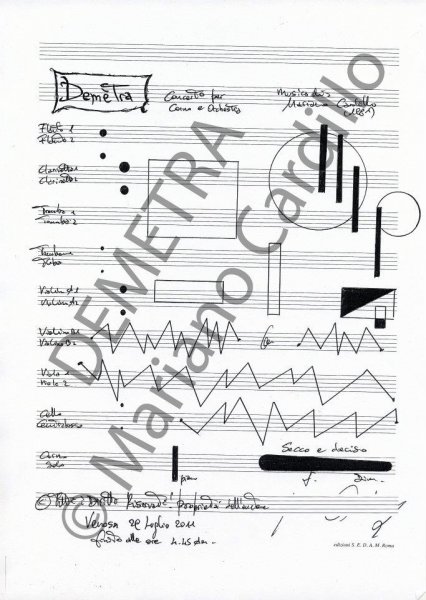 Demetra
Concerto per
Corno e Orchestra
Musica di:
Mariano Cardillo
(1981)
Flauto 1
Flauto 2
Clarinetto 1
Clarinetto 2
Tromba 1
Tromba 2
Trombone
Violini 1
Violini 2
Viola 1
Viola 2
Cello
Contrabasso
Corno
Solo
Secco e deciso
f.
© Diritti Riservati! Proprietà dell'autore
Venosa 29 Luglio 2011
alle ore 4.45
edizioni S. E. D. A. M. Roma
© DEMETRA
Mariano Cardillo